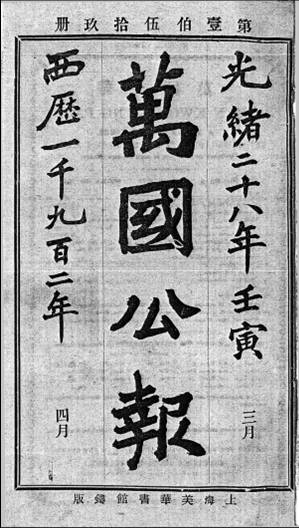 第壹伯伍拾玖册
光緒二十八年壬寅
三月
萬國公報
西歷一千九百二年
四月
上海美華書館鑄版